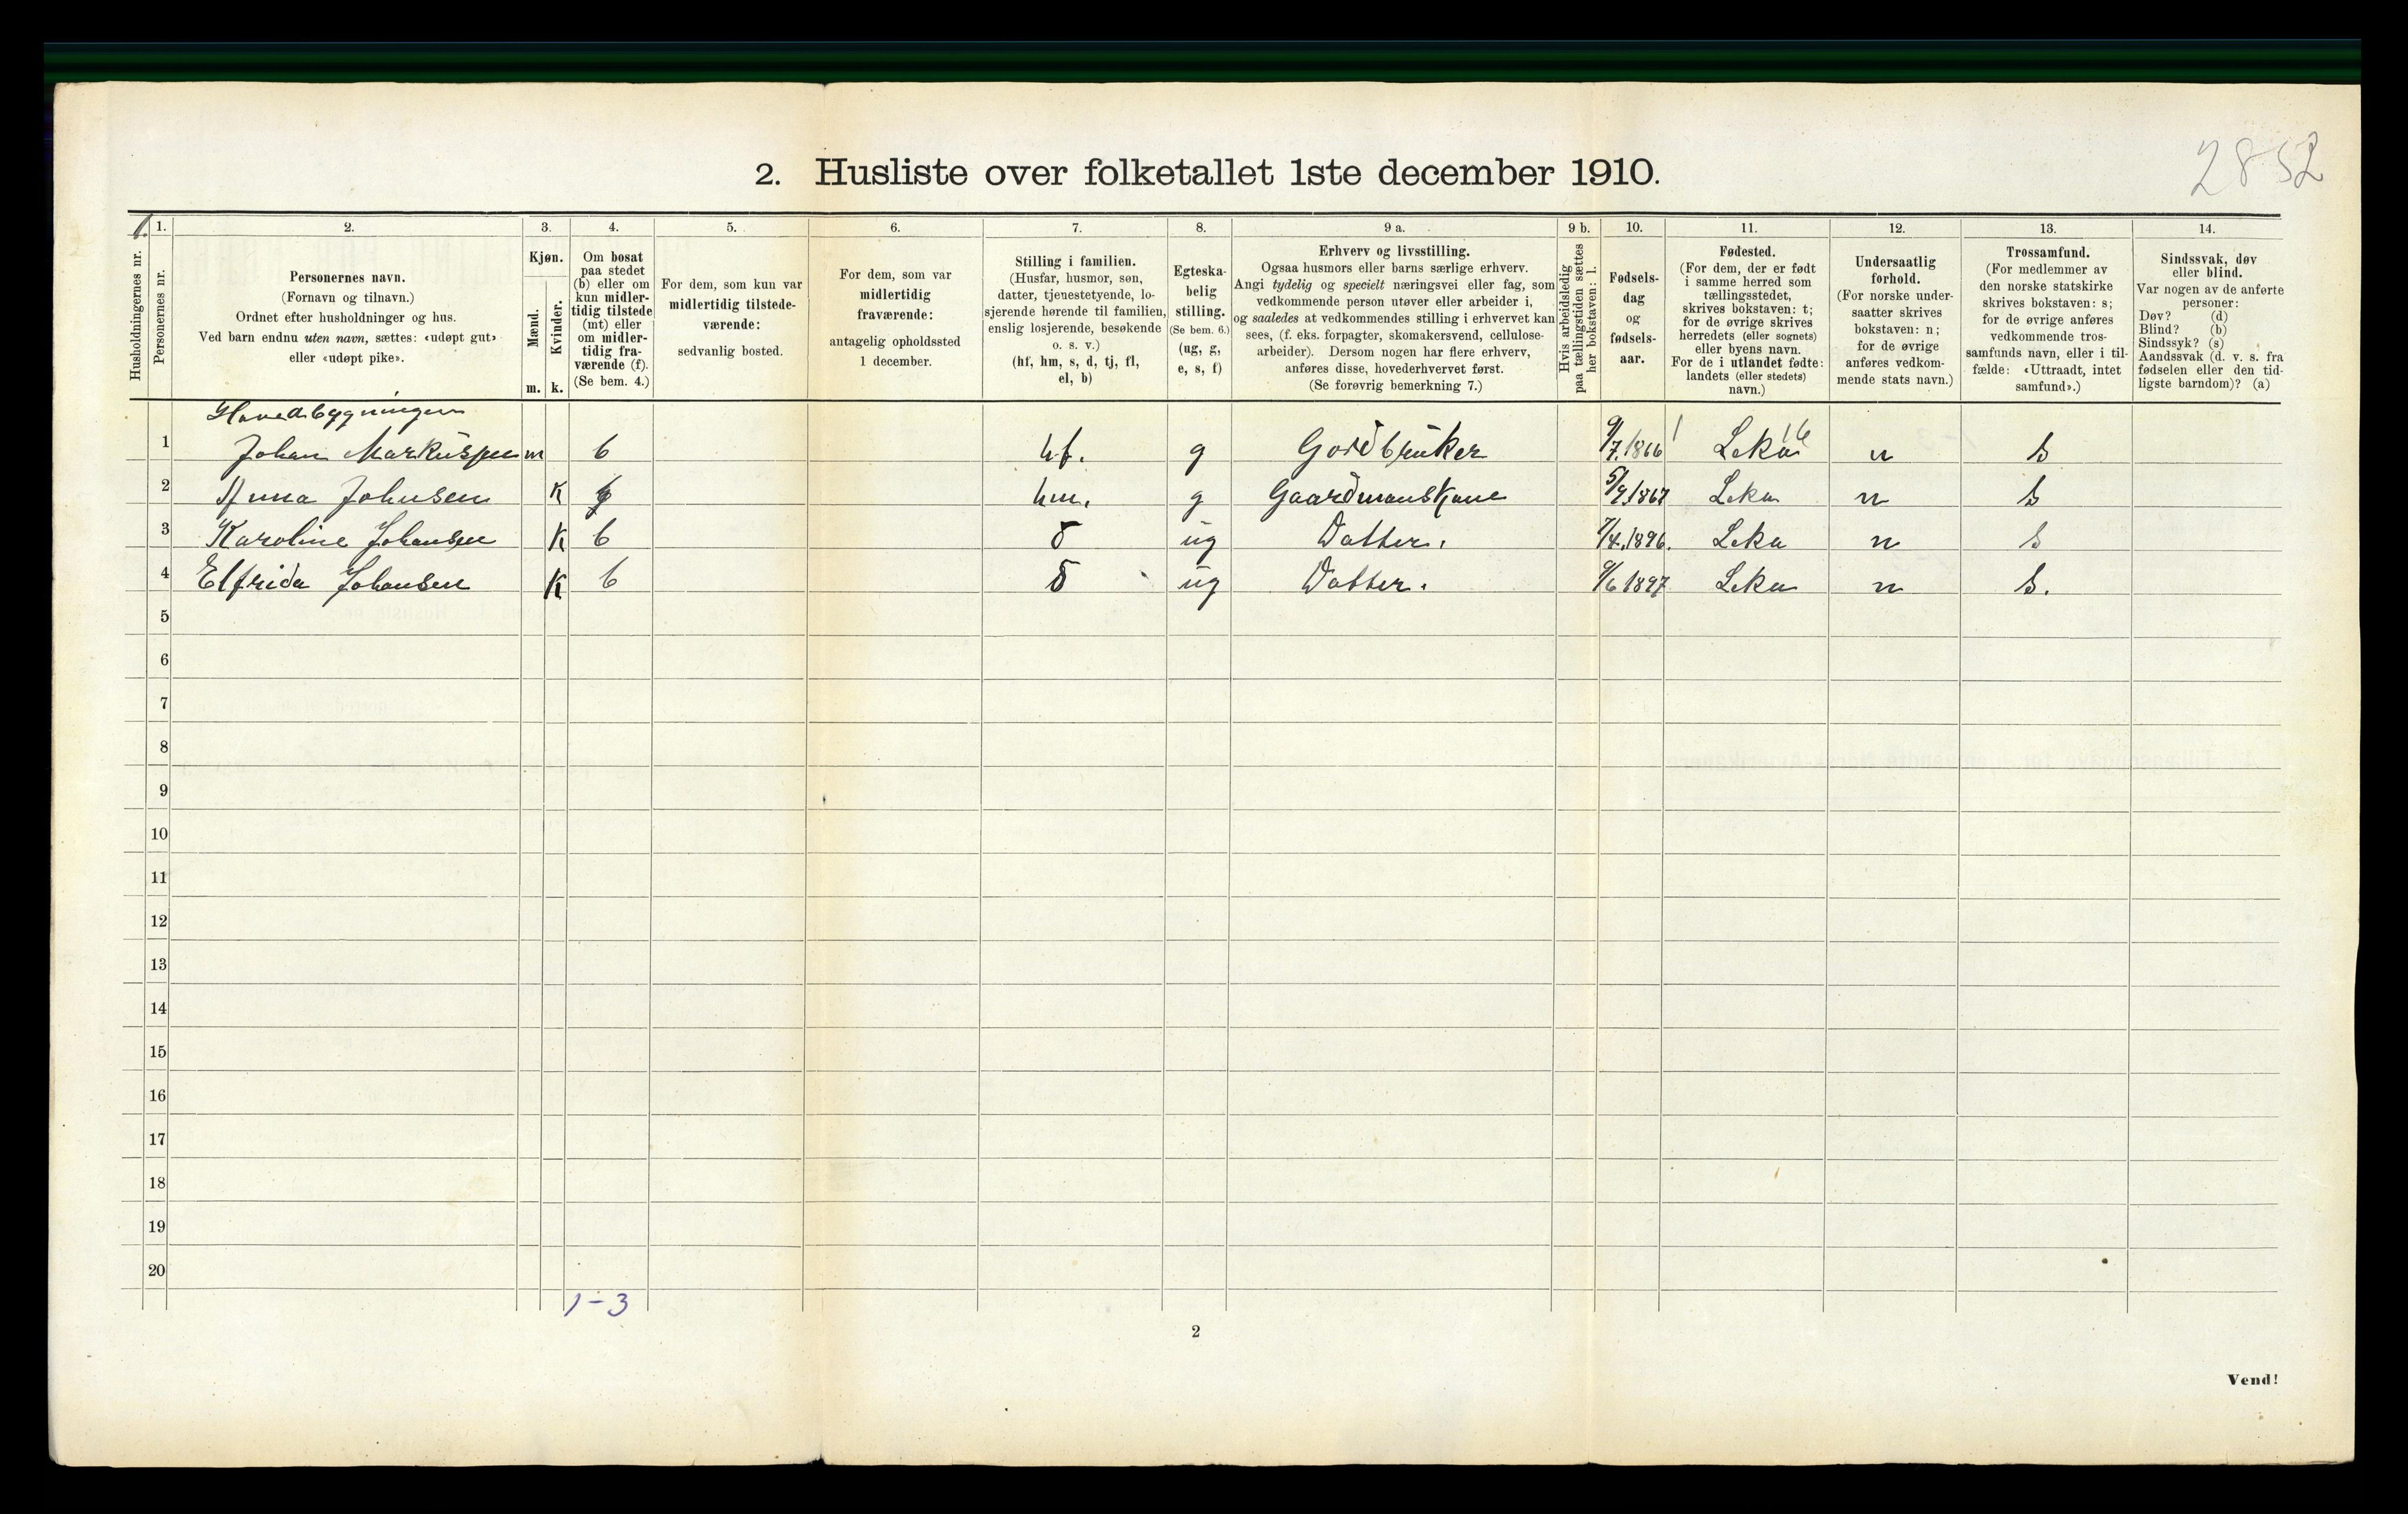 2852
2. Husliste over folketallet 1ste december 1910.
Husholdningernes nr.
1.
Personernes nr.
2.
Personernes navn.
(Fornavn og tilnavn.)
Ordnet efter husholdninger og hus.
Ved barn endnu uten navn, sættes: «udøpt gut»
eller «udøpt pike».
3.
Kjøn.
Mænd.
Kvinder.
m. k.
4.
Om bosat
paa stedet
(b) eller om
kun midler-
tidig tilstede
(mt) eller
om midler-
tidig fra-
værende (f).
(Se bem. 4.)
5.
For dem, som kun var
midlertidig tilstede-
værende:
sedvanlig bosted.
6.
For dem, som var
midlertidig
fraværende:
antagelig opholdssted
1 december.
7.
Stilling i familien.
(Husfar, husmor, søn,
datter, tjenestetyende, lo-
sjerende hørende til familien,
enslig losjerende, besøkende
o. s. v.)
(hf, hm, s, d, tj, fl,
el, b)
8.
Egteska-
belig
stilling.
(Se bem. 6.)
(ug, g,
e, s, f)
9 a.
Erhverv og livsstilling.
Ogsaa husmors eller barns særlige erhverv.
Angi tydelig og specielt næringsvei eller fag, som
vedkommende person utøver eller arbeider i,
og saaledes at vedkommendes stilling i erhvervet kan
sees, (f. eks. forpagter, skomakersvend, cellulose-
arbeider). Dersom nogen har flere erhverv,
anføres disse, hovederhvervet først.
(Se forøvrig bemerkning 7.)
9 b.
Hvis arbeidsledig
paa tællingstiden sættes
her bokstaven: l.
10.
Fødsels-
dag
og
fødsels-
aar.
11.
Fødested.
(For dem, der er født
i samme herred som
tællingsstedet,
skrives bokstaven: t;
for de øvrige skrives
herredets (eller sognets)
eller byens navn.
For de i utlandet fødte:
landets (eller stedets)
navn.)
12.
Undersaatlig
forhold.
(For norske under-
saatter skrives
bokstaven: n;
for de øvrige
anføres vedkom-
mende stats navn.)
13.
Trossamfund.
(For medlemmer av
den norske statskirke
skrives bokstaven: s;
for de øvrige anføres
vedkommende tros-
samfunds navn, eller i til-
fælde: «Uttraadt, intet
samfund».)
14.
Sindssvak, døv
eller blind.
Var nogen av de anførte
personer:
Døv? (d)
Blind? (b)
Sindssyk? (s)
Aandssvak (d. v. s. fra
fødselen eller den tid-
ligste barndom)? (a)
Hovedbygningen
1 Johan Markussen m b hf. g Gordbruker 9/7.1866 Leka 16 n s
2 Anna Johnsen K b hm. g Gaardmanskone 5/9.1867 Leka n s
3 Karoline Johansen K b d ug Datter. 7/4.1896. Leka n s
4 Elfrida Johansen K b d ug Datter. 9/6 1897 Leka n s.
5
6
7
8
9
10
11
12
13
14
15
16
17
18
19
20
1-3
2
Vend!